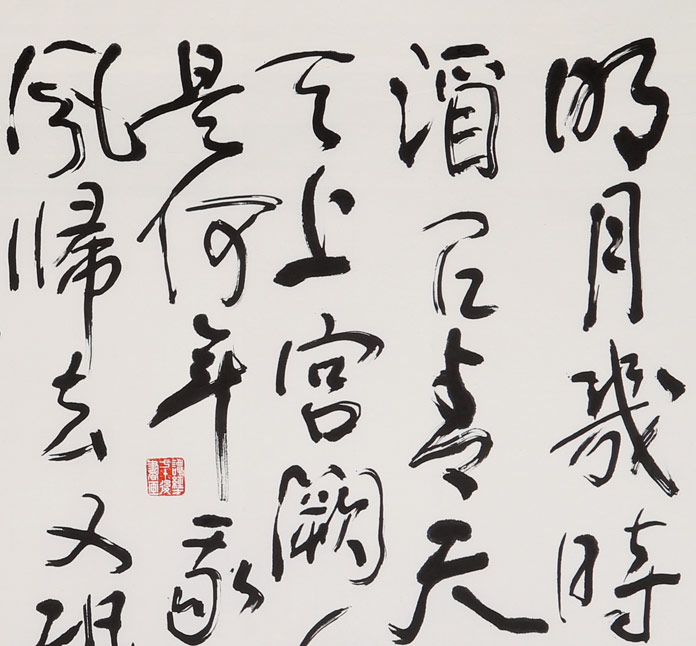 明月幾時
酒問青天
天上宮闕
是何年我
風帰去又